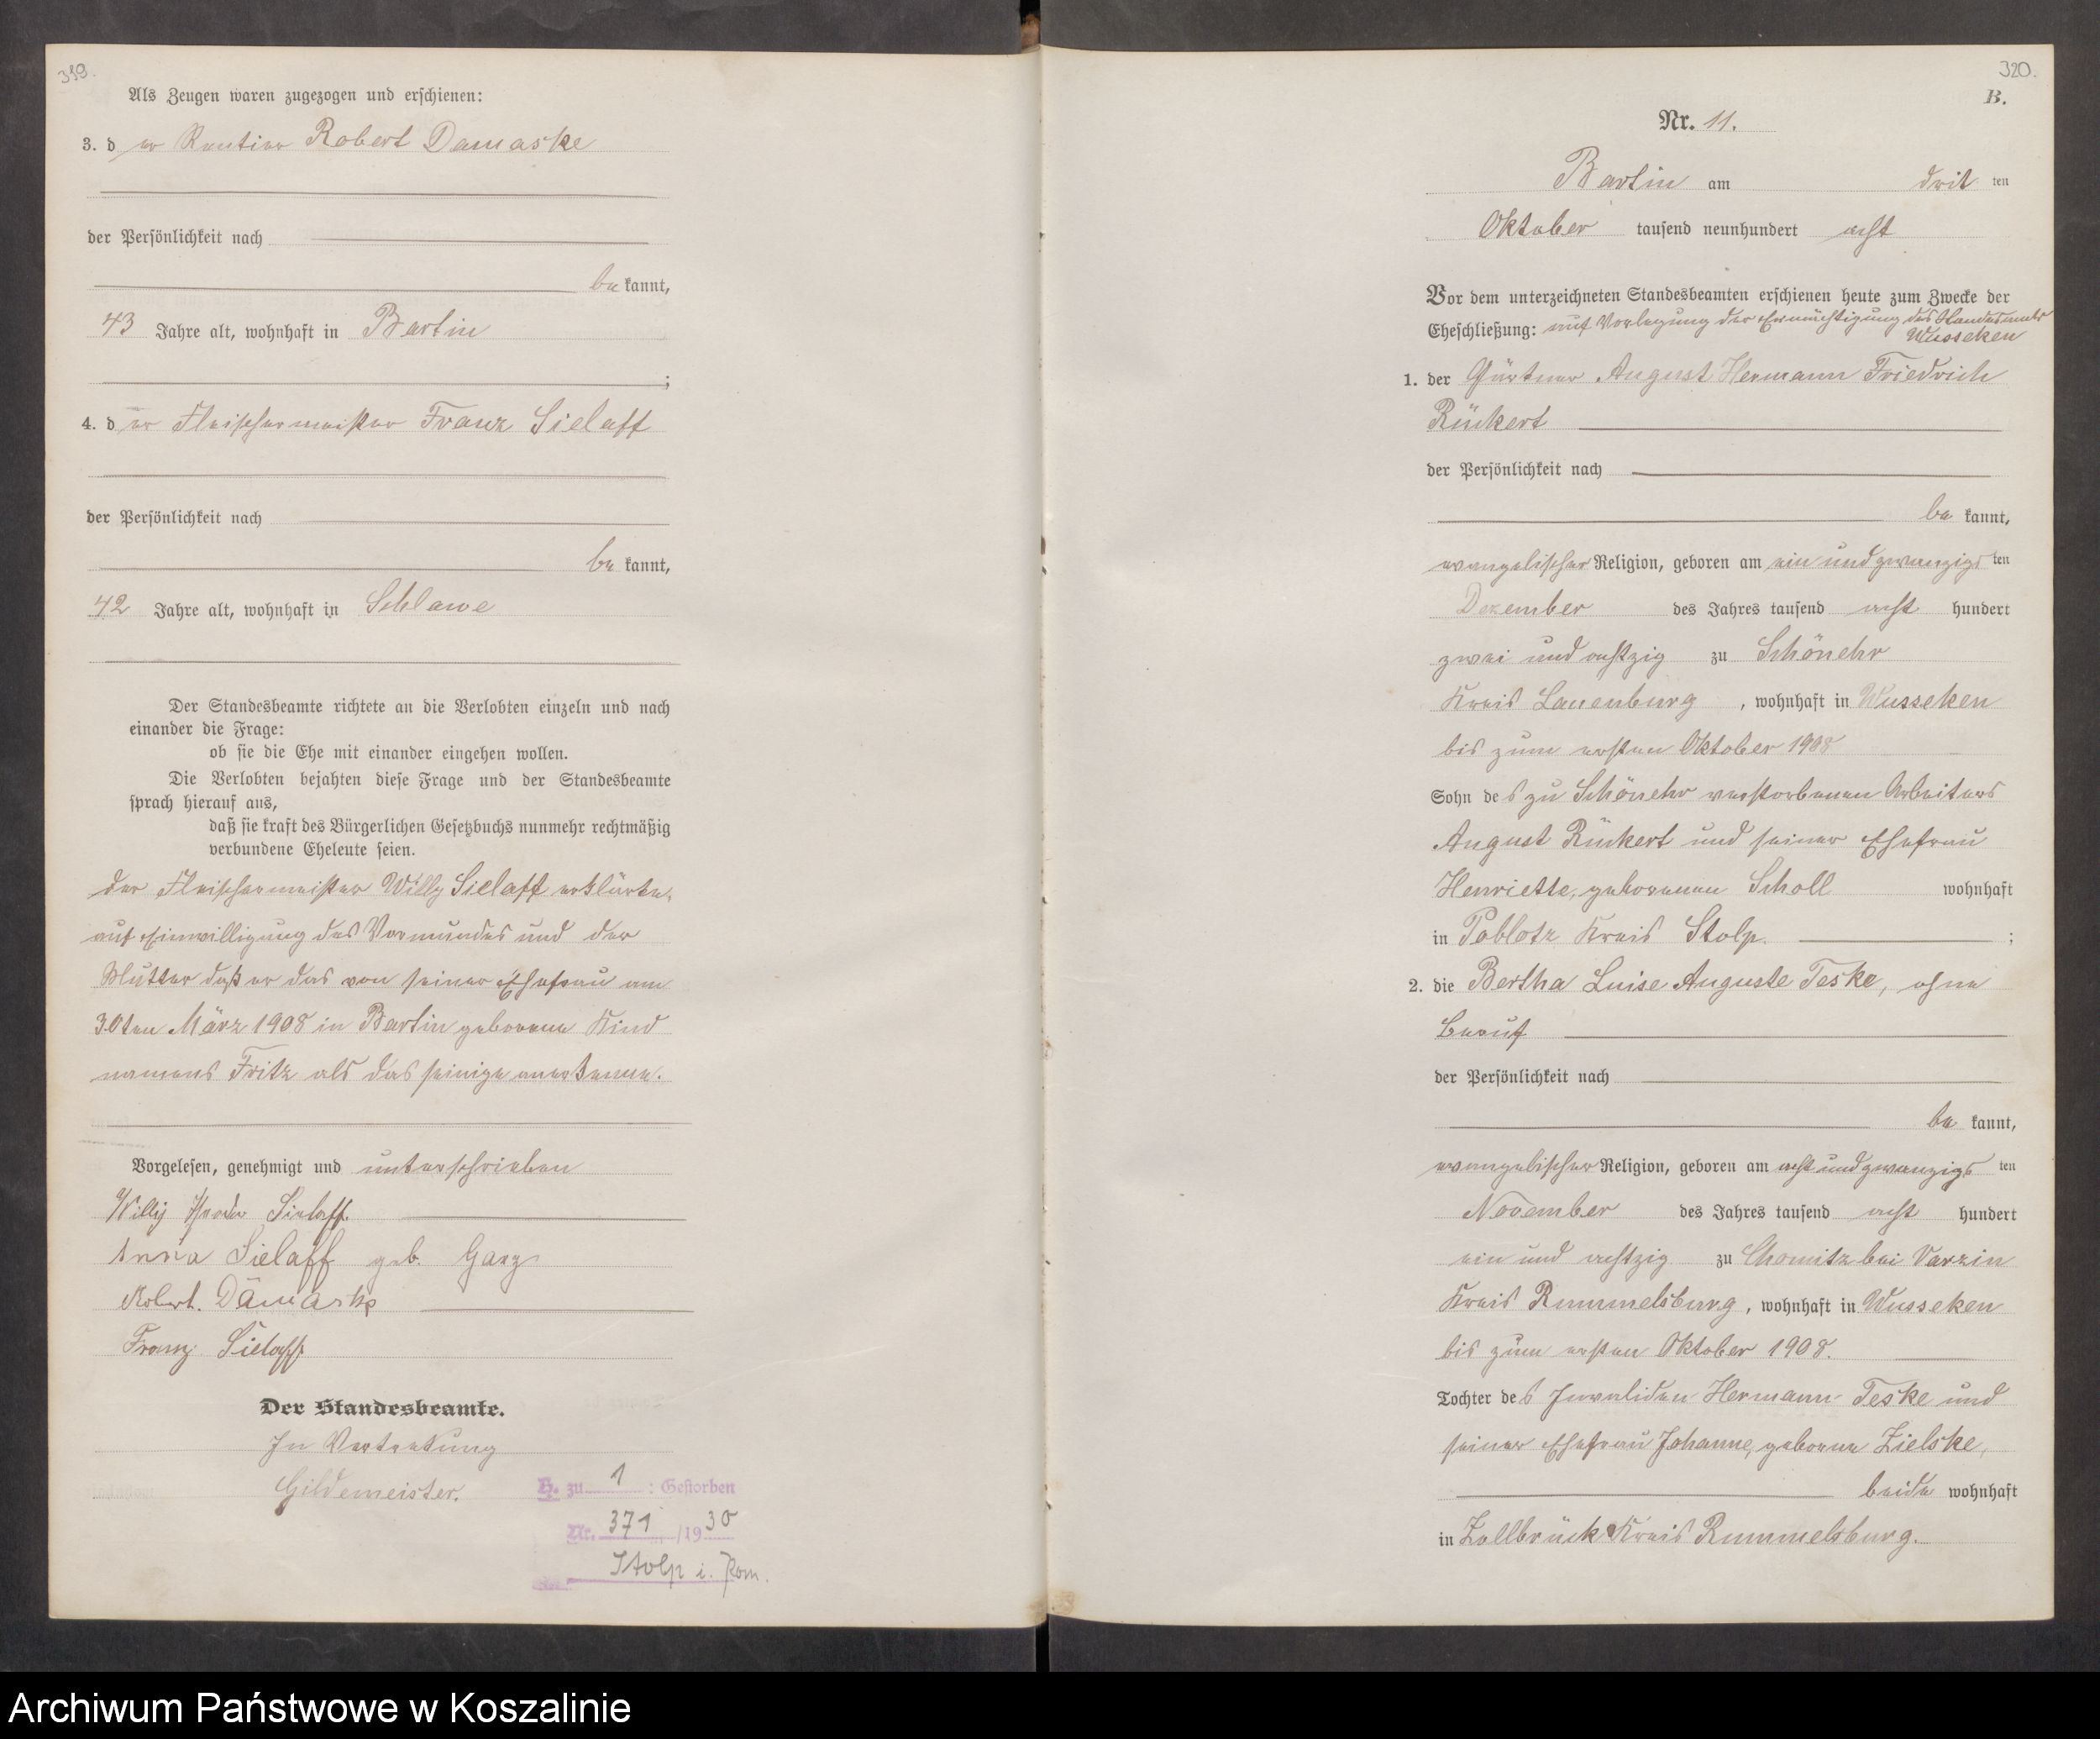 319.
Als Zeugen waren zugezogen und erschienen:
3. der Rentier Robert Damaske
der Persönlichkeit nach
bekannt,
43 Jahre alt, wohnhaft in Bartin
;
4. der Fleischermeister Franz Sielaff
der Persönlichkeit nach
bekannt,
42 Jahre alt, wohnhaft in Schlawe
Der Standesbeamte richtete an die Verlobten einzeln und nach
einander die Frage:
ob sie die Ehe mit einander eingehen wollen.
Die Verlobten bejahten diese Frage und der Standesbeamte
sprach hierauf aus,
daß sie kraft des Bürgerlichen Gesetzbuchs nunmehr rechtmäßig
verbundene Eheleute seien.
der Fleischermeister Willy Sielaff erklärte,
auf Einwilligung des Vormundes und der
Mutter daß er das von seiner Ehefrau am
30ten März 1908 in Bartin geborene Kind
namens Fritz als das seinige anerkenne.
Vorgelesen, genehmigt und unterschrieben
Willy Sielaff.
Anna Sielaff geb. Ganz
Robert. Damaske
Franz Sielaff
Der Standesbeamte.
In Vertretung
Gildemeister.
H. zu 1 : Gestorben
Nr. 371 /1930
Stolp i. Pom.
320.
B.
Nr. 11.
Bartin am dritten
Oktober tausend neunhundert acht
Vor dem unterzeichneten Standesbeamten erschienen heute zum Zwecke der
Eheschließung: auf Vorlegung der Ermächtigung des Standesamts
Wusseken
1. der Gärtner August Hermann Friedrich
Rückert
der Persönlichkeit nach
bekannt,
evangelischer Religion, geboren am ein und zwanzigsten
Dezember des Jahres tausend acht hundert
zwei und achtzig zu Schönehr
Kreis Lauenburg, wohnhaft in Wusseken
bis zum ersten Oktober 1908
Sohn des zu Schönehr verstorbenen Arbeiters
August Rückert und seiner Ehefrau
Henriette, geborenen Scholl wohnhaft
in Poblotz Kreis Stolp. ;
2. die Bertha Luise Auguste Teske, ohne
Beruf
der Persönlichkeit nach
bekannt,
evangelischer Religion, geboren am acht und zwanzigsten
November des Jahres tausend acht hundert
ein und achtzig zu Chomitz bei Varzin
Kreis Rummelsburg, wohnhaft in Wusseken
bis zum ersten Oktober 1908.
Tochter des Invaliden Hermann Teske und
seiner Ehefrau Johanne, geborne Zielske,
beide wohnhaft
in Zollbrück Kreis Rummelsburg.
Archiwum Państwowe w Koszalinie